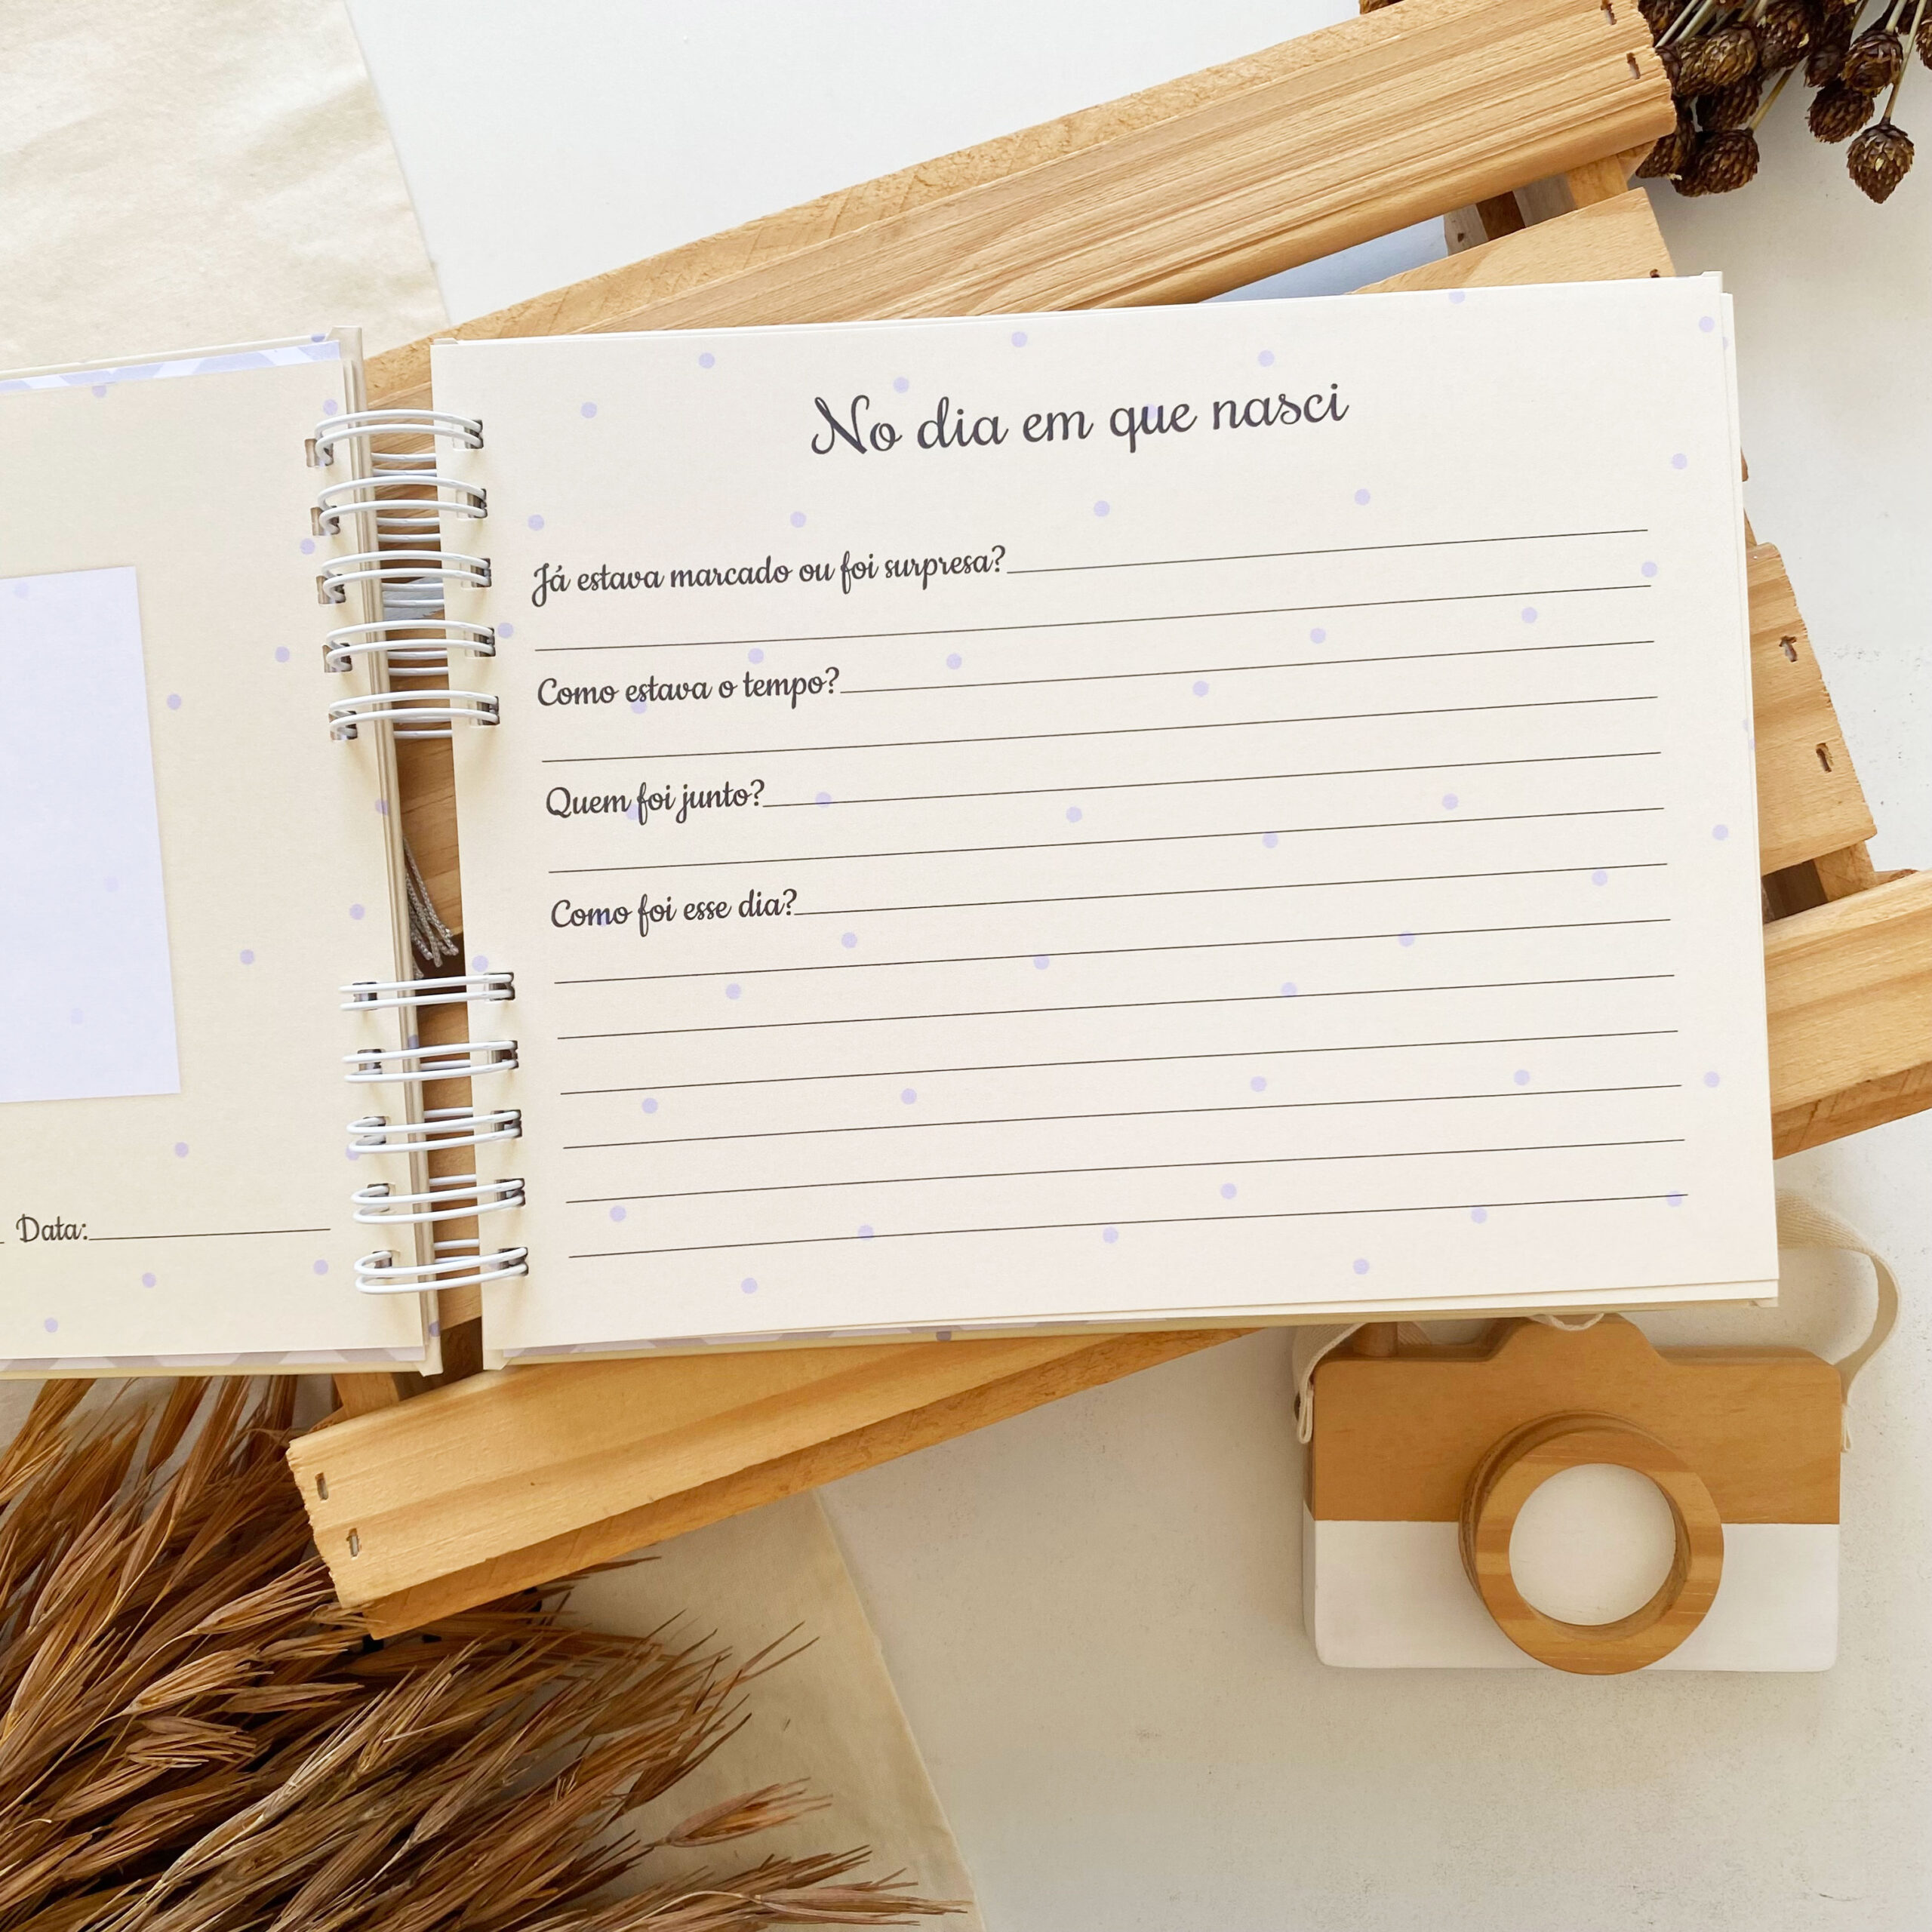 Data:
No dia em que nasci
Já estava marcado ou foi surpresa?
Como estava o tempo?
Quem foi junto?
Como foi esse dia?